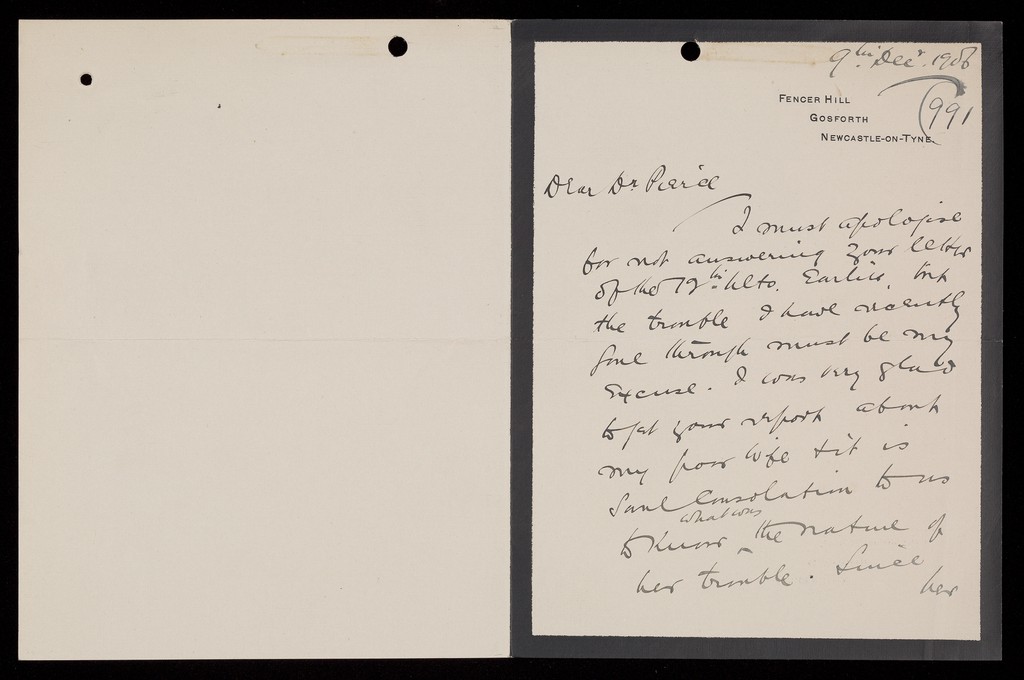 9th Decr. 1906
FENCER HILL
GOSFORTH
NEWCASTLE-ON-TYNE.
991
Dear Dr Pierce
I must apologise
for not answering your letter
of the 12th Ulto. Earlier, but
the trouble I have recently
gone through must be my
Excuse. I was very glad
to get your report about
my poor wife & it is
some Consolation to us
to know what was the nature of
her trouble. Since
her